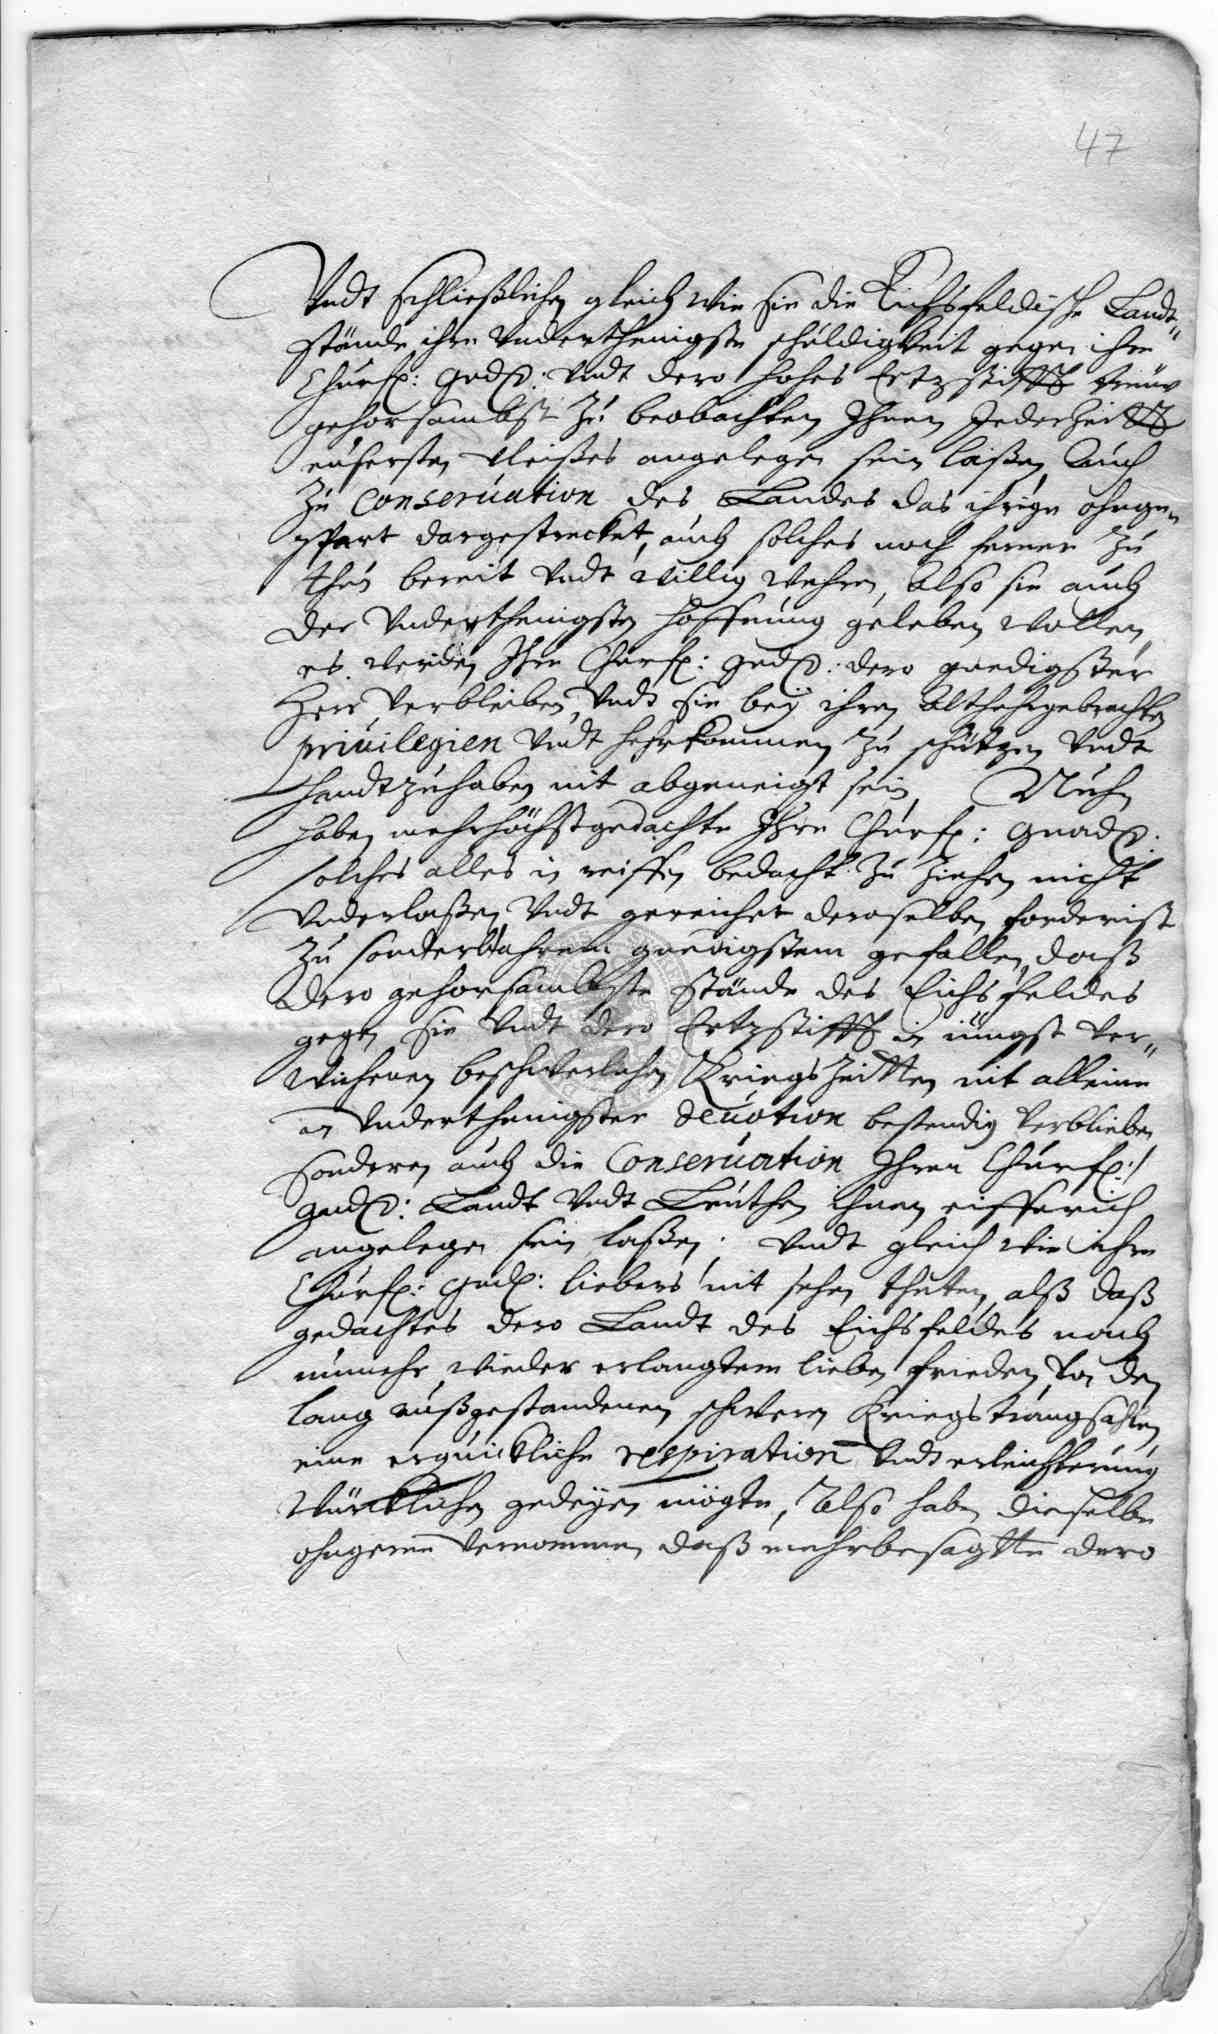 47
Undt schließlichen gleich wie sie die Eichsfeldische Landt-
stände ihre underthenigste schuldigkeit gegen ihre
Churf: Gnd: undt dero hohes Ertzstifft
gehorsambst zu beobachten Ihnen Jederzeitt
eusersten vleißes angelegen sein laßen, Auch
zu Conseruation des Landes das ihrige ohnge-
spart dargestrecket, auch solches noch ferner zu
thun bereit undt willig wehren, Also sie auch
der underthenigsten hoffnung geleben wollen,
es werden Ihre Churf: Gnd: dero gnedigster
Herr verbleiben, undt sie bey ihren althehrgebrachten
priuilegien undt hehrkommen zu schützen undt
handtzuhaben nit abgeneigt sein, Nuhn
haben mehrhöchstgedachte Ihre Churf: Gnad:
solches alles in reiffen bedacht zu ziehen nicht
underlaßen, undt gereichet deroselben forderist
zu sonderbahrem gnedigstem gefallen, daß
dero gehorsambste stände des Eichsfeldes
gegen sie undt dero Ertzstifft in iüngst ver-
wichenen beschwerlichen Kriegszeitten nit alleine
in underthenigster deuotion bestendig verblieben
sonderen auch die Conseruation Ihrer Churf:
Gnd: Landt undt Leuthen ihnen eifferich
angelegen sein laßen; undt gleich wie ihre
Churf: Gnd: liebers nit sehen theten, alß daß
gedachtes dero Landt des Eichsfeldes nach
nunmehr wieder erlangtem lieben frieden, von den
lang außgestandenen schweren Kriegstrangsahlen
eine erquickliche respiration undt erleichterung
würcklichen gedeyen mögte, Also haben dieselbe
ohngerne vernommen, daß mehrbesagtte dero